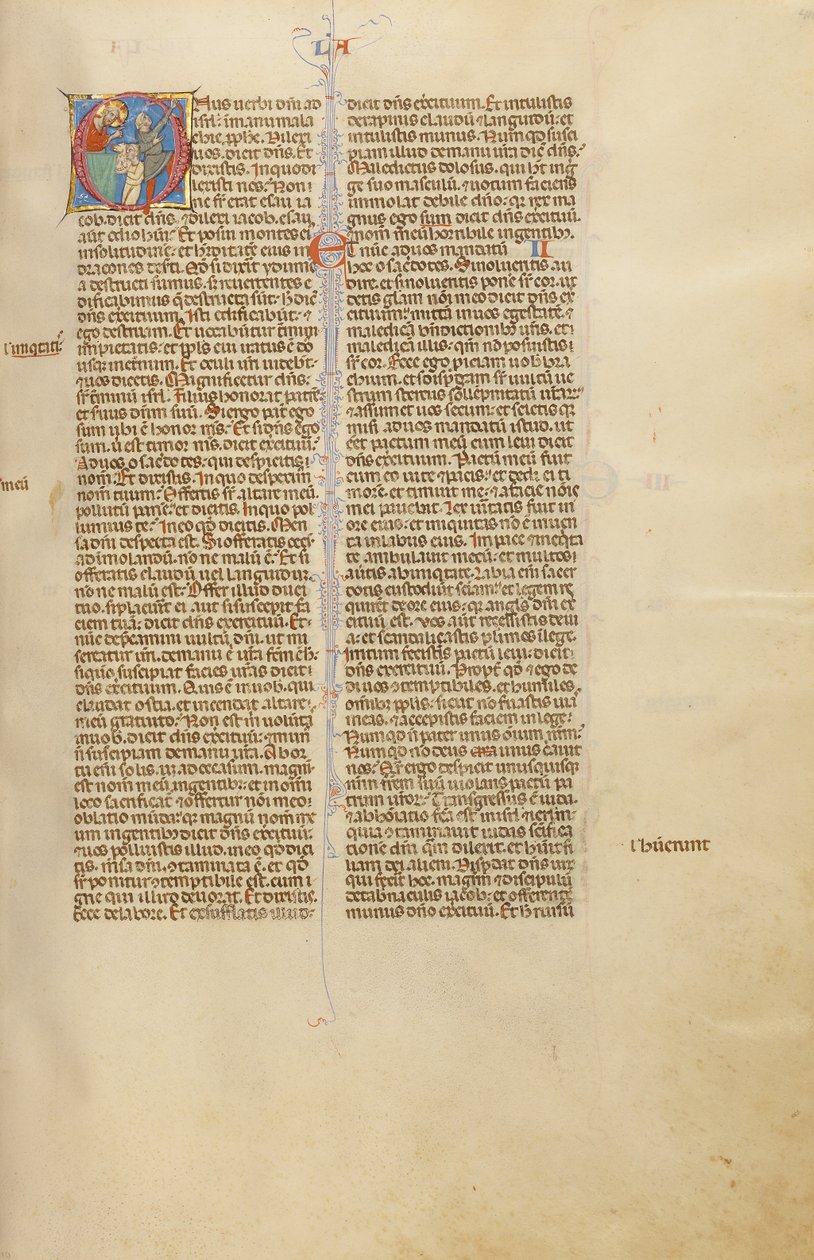 LA
Onus uerbi dn̄i ad
isrl̄. in manu mala
chie. ꝓphe. Dilexi
uos. dicit dn̄s. Et
dixistis. In quo di
lexisti nos. Non
ne fr̄ erat esau ia
cob. dicit dn̄s. ⁊ dilexi iacob. esau
aūt odio hūi. Et posui montes ei
in solitudinē. et h̄editatē eius in
dracones deserti. Qd̄ si dixit ydume
a destructi sumus. s; reuertentes e
dificabimus q̄ destructa sūt. h̄ dic̄
dn̄s exercituum. Isti edificabūt. ⁊
ego destruam. Et uocabūtur t̄mini
impietatis. et ppl̄s cui iratus ē dn̄s
usq; in et̄num. Et oculi ur̄i uidebūt.
⁊ uos dicetis. Magnificetur dn̄s.
sr̄ t̄minū isrl̄. Filius honorat patrē.
et suus dn̄m suū. Si ergo pat̄ ego
sum ubi ē honor m̄s. Et si dn̄s ego
sum. ubi est timor m̄s. dicit dn̄s exercituū.
Ad uos o sacerdotes. qui despicitis
nom̄. Et dixistis. In quo despexim;
nom̄ tuum. Offertis sr̄ altare meū.
pollutū panē. et dicitis. In quo pol
luimus te. In eo qd̄ dicitis. Men
sa dn̄i despecta est. Si offeratis cecū
ad imolandū. nōne malū ē. Et si
offeratis claudū uel languidum.
nōne malū est. Offer illud duci
tuo. si placuerit ei aut si susceperit fa
ciem tuā. dicit dn̄s exercituū. Et
nūc dep̄camini uultū dn̄i. ut mi
sereatur ur̄i. de manu ē ur̄a fc̄m ē h̄.
si quo suscipiat facies ur̄as. dicit
dn̄s exercituū. Quis ē in uob. qui
claudat ostia. et incendat altare
meū gratuito. Non est m̄ uolūtas
in uob. dicit dn̄s exercituū. ⁊ mun;
n̄ suscipiam de manu ur̄a. Ab or
tu eni solis. usq; ad occasum. magnū
est nom̄ meū in gentib;. et in om̄i
loco sacrificat̄ ⁊ offertur nōi meo
oblatio mūda. q; magnū nom̄ me
um in gentib; dicit dn̄s exercituū.
⁊ uos polluistis illud. in eo qd̄ dici
tis. m̄sa dn̄i. ꝯtaminata ē. et qd̄
sr̄ponitur ꝯtemptibile est. cum i
gne qui illud deuorat. Et dixistis.
Ecce de labore. Et exsufflastis illud.
dicit dn̄s exercituum. Et intulistis
de rapinis claudū ⁊ languidū. et
intulistis munus. Num qd̄ susci
piam illud de manu ur̄a dic̄ dn̄s.
Maledictus dolosus. qui h̄t in g̃
ge suo masculū. ⁊ uotum faciens
immolat debile dn̄o. q; rex ma
gnus ego sum dicit dn̄s exercituū.
⁊ nom̄ meū horribile in gentib;.
Et nūc ad uos mandatū II
hoc o sac̄dotes. Si nolueritis au
dire. et si nolueritis ponē sr̄ cor. ut
detis glam̄ nōi meo dicit dn̄s ex
cituum. mittā in uos egestatē. ⁊
maledicā bn̄dictionib; ur̄is. et
maledicā illis. qm̄ nō posuistis
sr̄ cor. Ecce ego ꝓiciam uob bra
chium. et dispergam sr̄ uultū ue
strum stercus sollēpnitatū ur̄ar̄.
⁊ assumet uos secum. et scietis q;
misi ad uos mandatū istud. ut
ēet pactum meū cum leui dicit
dn̄s exercituum. Pactū meū fuit
cum eo uite ⁊ pacis. et dedi ei ti
morē. et timuit me. ⁊ a facie nōis
mei pauebat. Lex ūitatis fuit in
ore eius. et iniquitas nō ē inuen
ta in labiis eius. In pace ⁊ in eq̄ta
te ambulauit mecū. et multos
aūtit ab iniq̄tate. Labia eni sacer
dotis custodiūt sciam̄. et legem re
quirēt de ore eius. q; angls̄ dn̄i ex
cituū est. Vos aūt recessistis de ui
a. et scandalizastis plimos ī lege.
Irritum fecistis pactū leui. dicit
dn̄s exercituū. Propt̄ qd̄ ⁊ ego de
di uos ꝯtemptibiles. et humiles
omib; pplis. sicut nō seruastis uias
meas. ⁊ accepistis faciem in lege.
Num qd̄ n̄ pater unus om̄ium nr̄m.
Num qd̄ nō deus unus creauit
nos. Qr̄ ergo despicit unusquisq;
nr̄m frem̄ suū uiolans pactū pa
trum nr̄or̄. Transgressus ē iuda.
⁊ abhoiatio fc̄a est in isrl̄ ⁊ ierlm̄.
quia ꝯtaminauit iudas sc̄ifica
tione dn̄i qm̄ dilexit. et h̄uit fi
liam dei alieni. Disꝑdat dn̄s uir
qui fecerit hoc. magrm̄ ⁊ discipulū
de tabnaculis iacob. et offerentē
munus dn̄o exercituū. Et h̄ rursū
meū
l' hūerunt